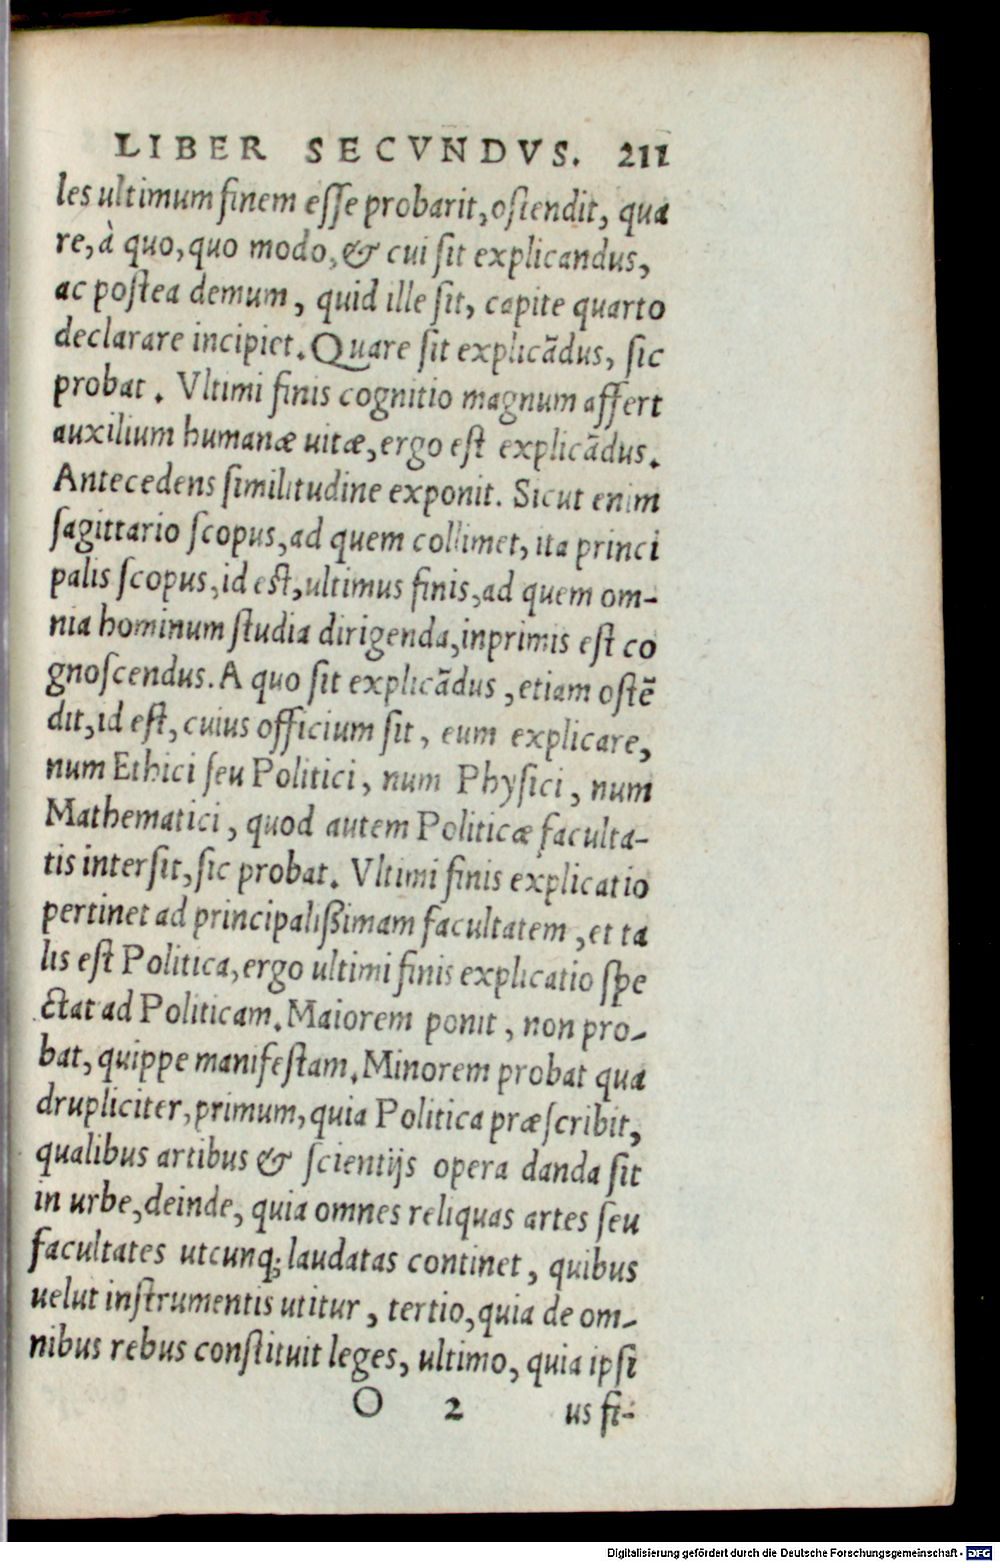 LIBER SECVNDVS. 211
les ultimum finem eſſe probarit, oſtendit, qua
re, à quo, quo modo, & cui ſit explicandus,
ac poſtea demum, quid ille ſit, capite quarto
declarare incipiet. Quare ſit explicādus, ſic
probat. Vltimi finis cognitio magnum affert
auxilium humanæ uitæ, ergo eſt explicādus.
Antecedens ſimilitudine exponit. Sicut enim
ſagittario ſcopus, ad quem collimet, ita princi
palis ſcopus, id eſt, ultimus finis, ad quem om-
nia hominum ſtudia dirigenda, inprimis eſt co
gnoſcendus. A quo ſit explicādus, etiam oſtē
dit, id eſt, cuius officium ſit, eum explicare,
num Ethici ſeu Politici, num Phyſici, num
Mathematici, quod autem Politicæ faculta-
tis interſit, ſic probat. Vltimi finis explicatio
pertinet ad principalißimam facultatem, et ta
lis eſt Politica, ergo ultimi finis explicatio ſpe
ctat ad Politicam. Maiorem ponit, non pro-
bat, quippe manifeſtam. Minorem probat qua
drupliciter, primum, quia Politica præſcribit,
qualibus artibus & ſcientijs opera danda ſit
in urbe, deinde, quia omnes reliquas artes ſeu
facultates utcunq; laudatas continet, quibus
uelut inſtrumentis utitur, tertio, quia de om-
nibus rebus conſtituit leges, ultimo, quia ipſi
O 2 us fi-
Digitalisierung gefördert durch die Deutsche Forschungsgemeinschaft - DFG